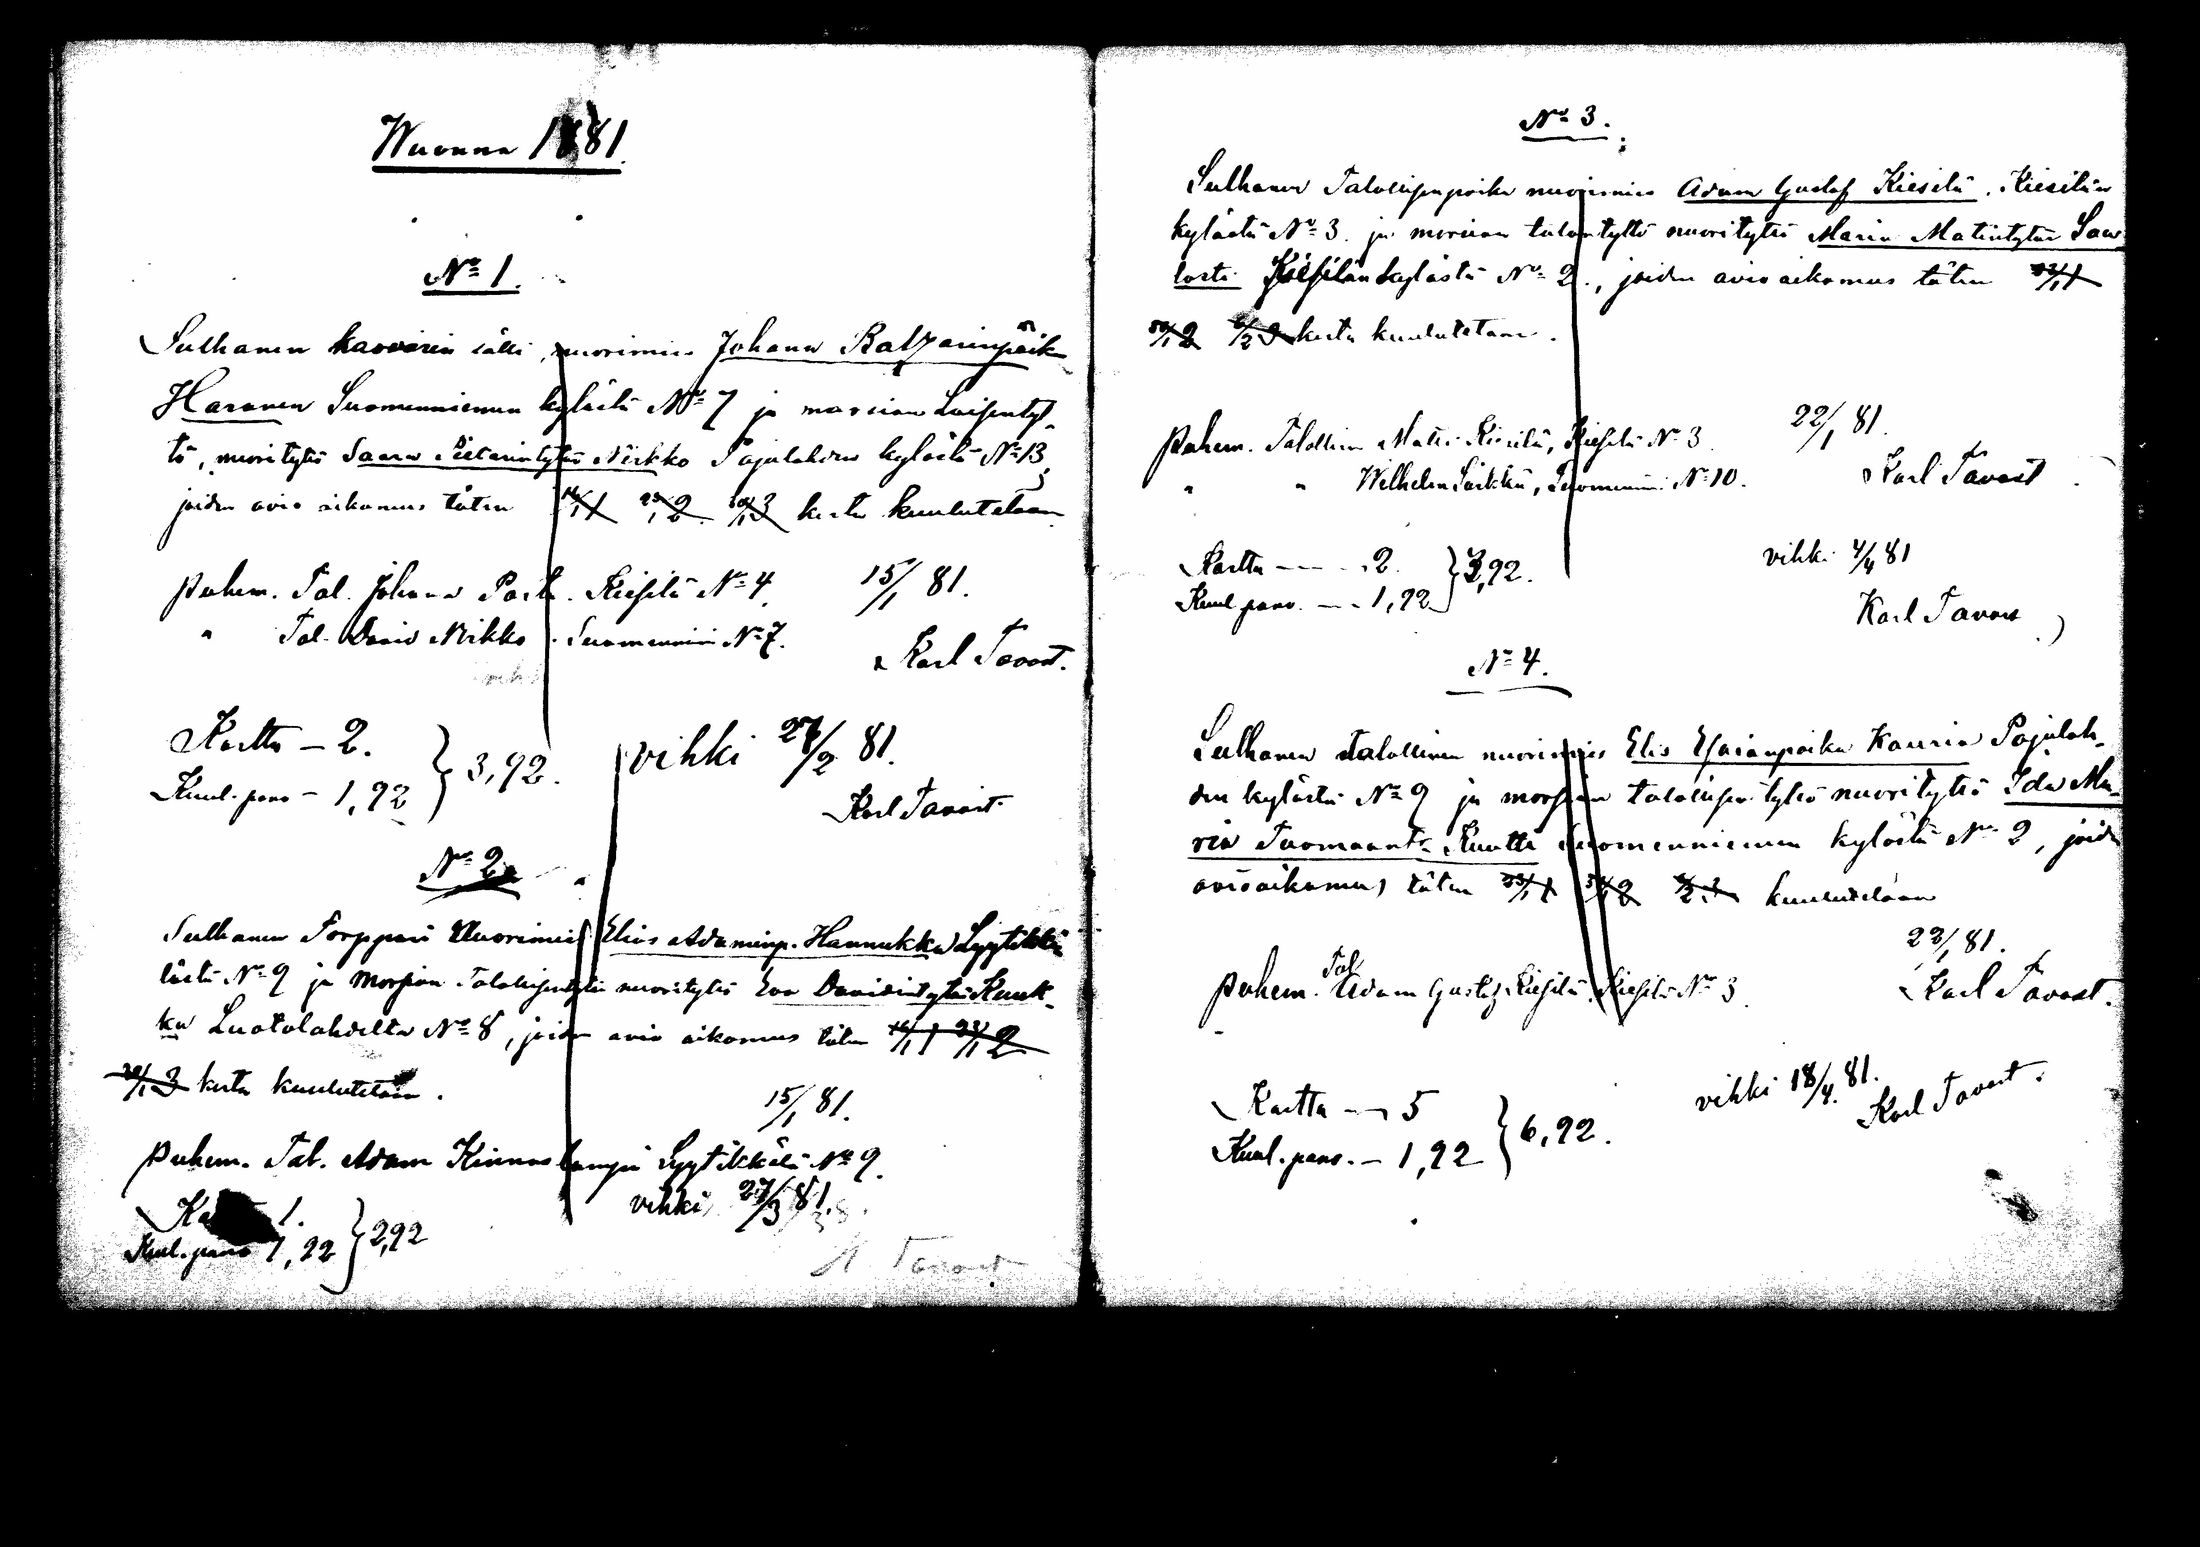 Wuonna 1881.
No 1.
Sulhanen karvarin sälli, nuorimies Johann Baltzarinpoik
Haranen Suomenniemen kylästä No 7 ja morsian Loisentyt-
tö, nuorityttö Saara Pietarintytär Mirkko Pajulahden kylästä No 13,
joiden avio aikomus täten 16/1 1 23/1 2 30/1 3 kerta kuulutetaan
Puhem. Tal. Johann Partu. Kiesilä No 4. 15/1 81.
" Tal. David Mirkko. Suomenniemi No 7.
Karl Tavast.
Kartta – 2.
Kuul. pano – 1,92 } 3,92. vihki 27/2 81.
Karl Tavast
No 2.
Sulhanen Torppari Nuorimies Elias Adaminp. Hannukka Lyytikkä
lästä No 9 ja Morsian Talollisentyttö nuorityttö Eva Davidintytär Kuuk-
ka Luotolahdelta No 8, joiden avio aikomus täten 16/1 1 23/1 2
30/1 3 kerta kuulutetaan.
15/1 81.
Puhem. Tal. Adam Kinnaslampi Lyytikkälä No 9.
vihki 27/3 81.
Ka 1.
Kuul. pano 1,92 } 2,92
K. Tavast
No 3.
Sulhanen Talollisenpoika nuorimies Adam Gustaf Kiesilä. Kiesilän
kylästä No 3. ja morsian talontyttö nuorityttö Maria Matintytär Saw
losti Kiesilän kylästä No 2., joiden avio aikomus täten 23/1 1
30/1 2 6/2 3 kerta kuulutetaan.
22/1 81.
Puhem. Talollinen Matti Kiesilä, Kiesilä No 3.
" " Wilhelm Särkkä, Suomenniemi No 10.
Karl Tavast
Kartta – – – 2.
Kuul. pano. – – 1,92 } 3,92.
vihki 4/4 81
Karl Tavast
No 4.
Sulhanen Talollinen nuorimies Elis Esaianpoika Kauria Pajulah-
den kylästä No 9 ja morsian talollisen tyttö nuorityttö Ida Ma-
ria Tuomaant. Kuutti Suomenniemen kylästä No 2, joiden
avioaikomus täten 23/1 1 30/1 2 6/2 3 kuulutetaan
22/1 81.
Puhem. Tal Adam Gustaf Kiesilä, Kiesilä No 3.
Karl Tavast.
vihki 18/4. 81.
Karl Tavast.
Kartta – – 5
Kuul. pano. – 1,92 } 6,92.